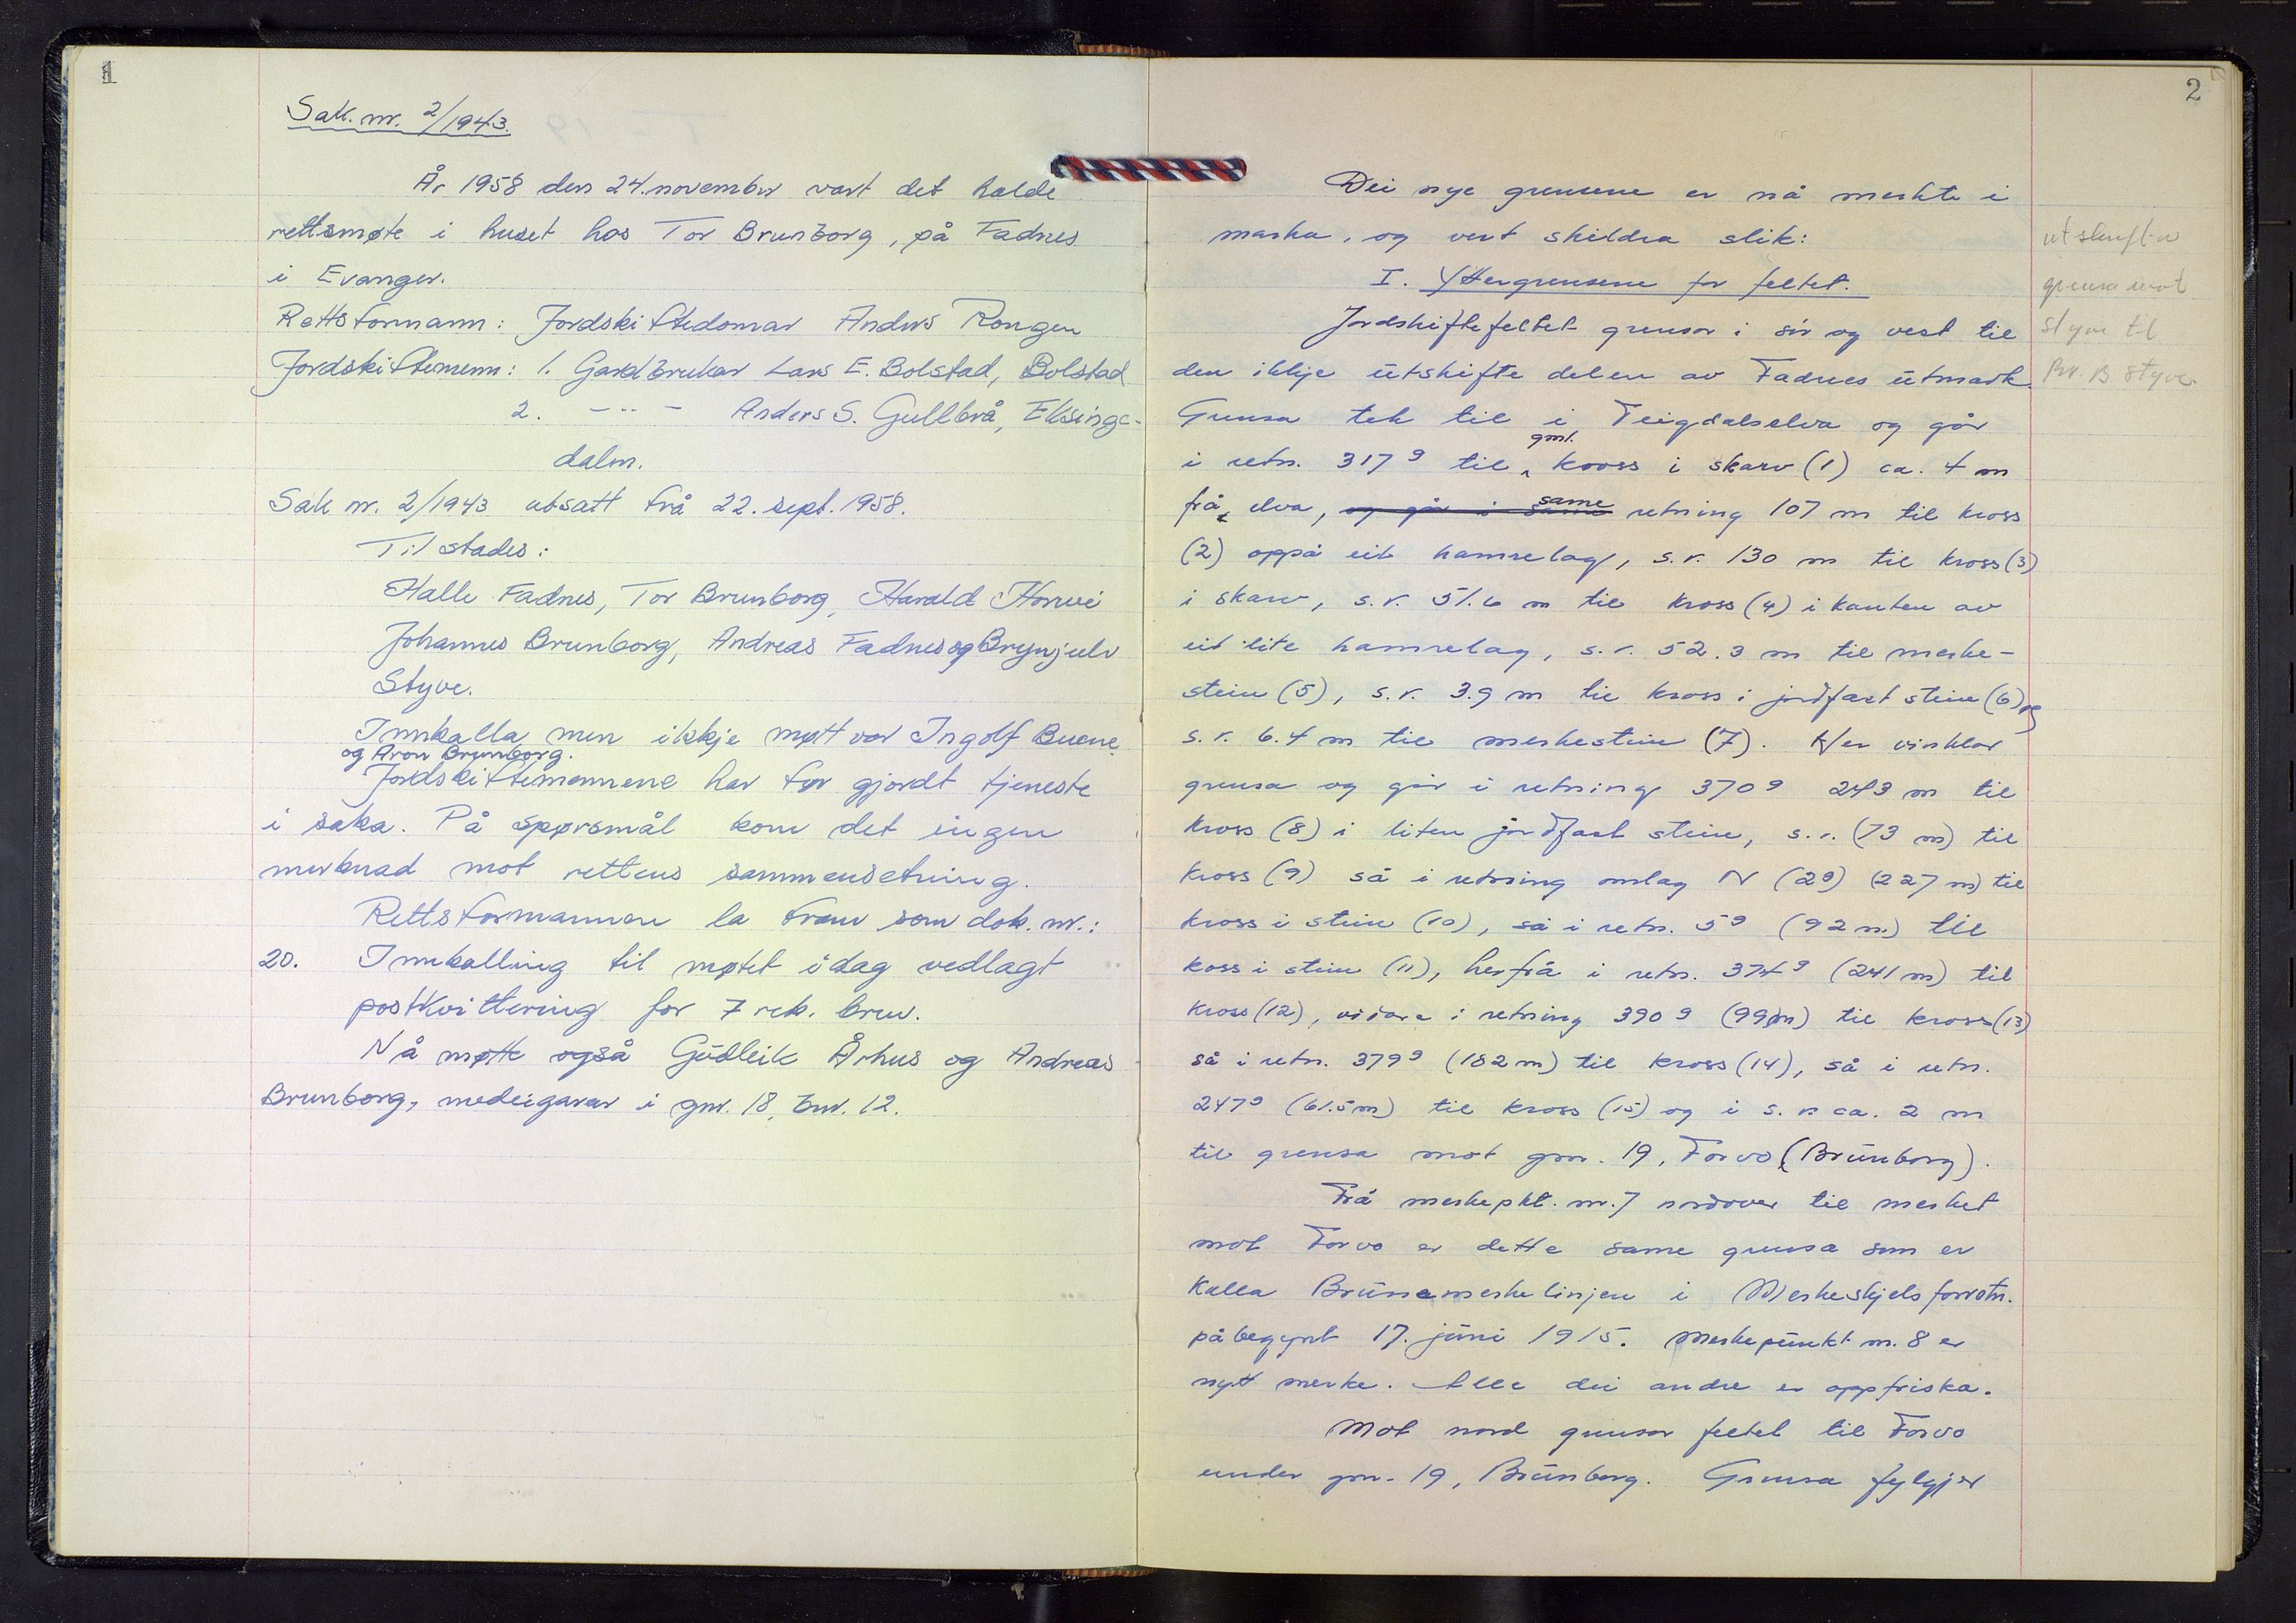 1
Sak. nr. 2/1943.
År 1958 den 24. november vart det halde
rettsmøte i huset hos Tor Brunborg, på Fadnes
i Evanger.
Rettsformann: Jordskiftedomar Anders Rongen
Jordskiftemenn: 1. Gardbrukar Lars E. Bolstad, Bolstad
2. - " - Anders S. Gullbrå, Eksinge-
dalen.
Sak nr. 2/1943 utsatt frå 22. sept. 1958.
Til stades:
Halle Fadnes, Tor Brunborg, Harald Horvei
Johannes Brunborg, Andreas Fadnes og Brynjulv
Styve.
Innkalla men ikkje møtt var Ingolf Buene
og Aron Brunborg.
Jordskiftemennene har før gjordt tjeneste
i saka. På spørsmål kom det ingen
merknad mot rettens sammensetning.
Rettsformannen la fram som dok. nr.:
20. Innkalling til møtet idag vedlagt
postkvittering for 7 rek. brev.
Nå møtte også Gudleik Århus og Andreas
Brunborg, medeigarar i gnr. 18, bnr. 12.
2
Dei nye grensene er nå merkte i
marka, og vert skildra slik:
I. Yttergrensene for feltet.
Jordskiftefeltet grensar i sør og vest til
den ikkje utskifte delen av Fadnes utmark.
Grensa tek til i Teigdalselva og går
i retn. 317 g til gml. kross i skarv (1) ca. 4 m
frå elva, og går i same same retning 107 m til kross
(2) oppå eit hamrelag, s.r. 130 m til kross (3)
i skarv, s.r. 51.6 m til kross (4) i kanten av
eit lite hamrelag, s.r. 52.3 m til merke-
stein (5), s.r. 3.9 m til kross i jordfast stein (6) og
s.r. 6.4 m til merkestein (7). Her vinklar
grensa og går i retning 370 g 243 m til
kross (8) i liten jordfast stein, s.r. (73 m) til
kross (9) så i retning omlag N (2 g) (227 m) til
kross i stein (10), så i retn. 5 g (92 m) til
koss i stein (11), herfrå i retn. 374 g (241 m) til
kross (12), vidare i retning 390 g (99 m) til kross (13)
så i retn. 379 g (182 m) til kross (14), så i retn.
247 g (61.5 m) til kross (15) og i s. r. ca. 2 m
til grensa mot gnr. 19, Forvo (Brunborg).
Frå merkepkt. nr. 7 nordover til merket
mot Forvo er dette same grensa som er
kalla Brunemerkelinjen i Merkeskjelsforretn.
påbegynt 17. juni 1915. Merkepunkt nr. 8 er
nytt merke. Alle dei andre er oppfriska.
Mot nord grensar feltet til Forvo
under gnr. 19, Brunborg. Grensa fylgjer
utskrift av
grensa mot
Styve til
Br. B. Styve.